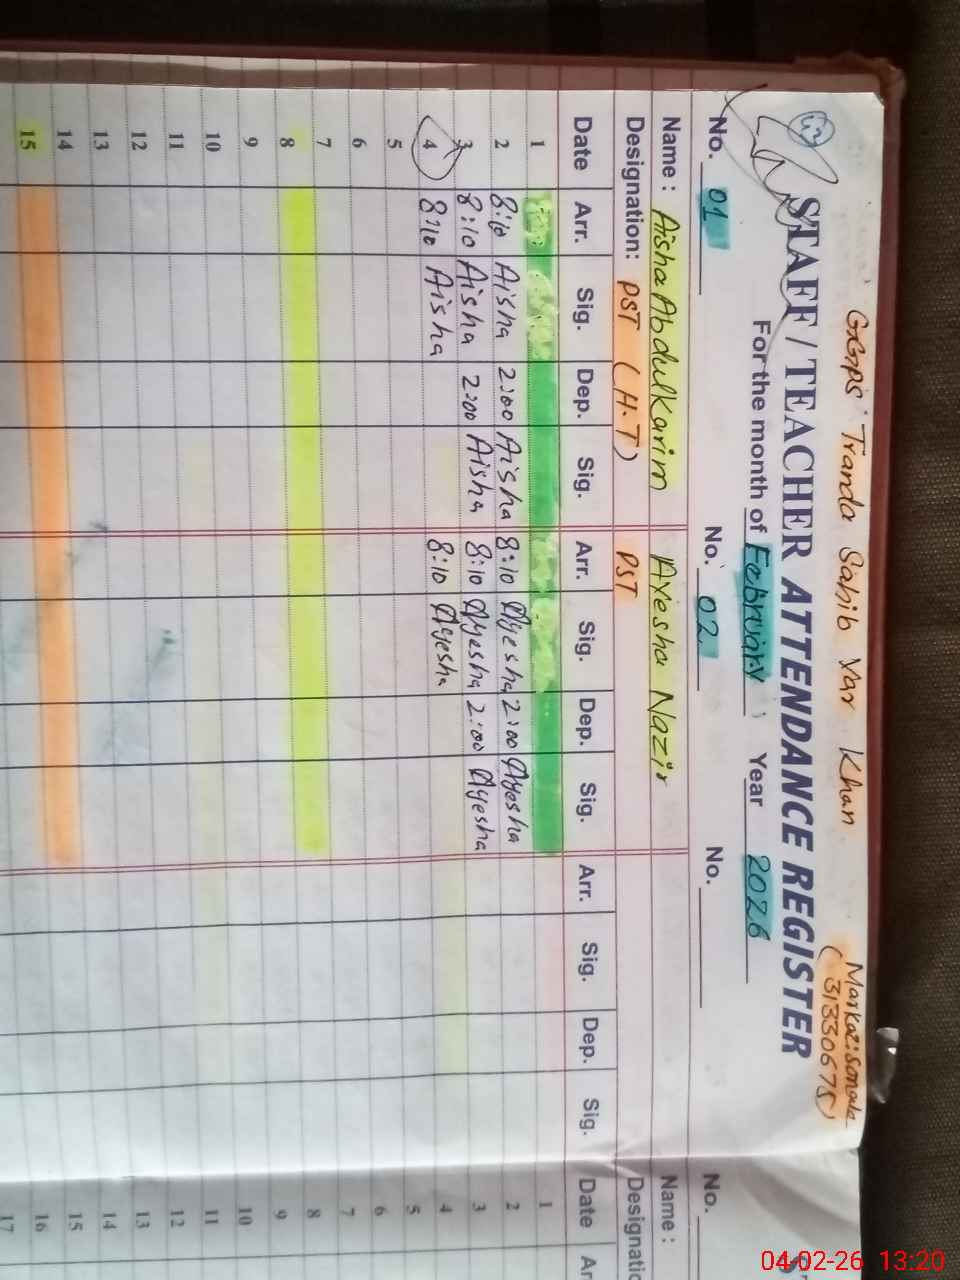 GGPS Tranda Sahib Yar Khan
Markaz: Sonak
(31330675)
STAFF / TEACHER ATTENDANCE REGISTER
For the month of February Year 2026
No. 01 No. 02 No.
Name : Aisha Abdulkarim Ayesha Nazir
Designation: PST (H.T) PST
Date Arr. Sig. Dep. Sig. Arr. Sig. Dep. Sig. Arr. Sig. Dep. Sig.
1
2 8:10 Aisha 2:00 Aisha 8:10 Ayesha 2:00 Ayesha
3 8:10 Aisha 2:00 Aisha 8:10 Ayesha 2:00 Ayesha
4 8:10 Aisha 8:10 Ayesha
5
6
7
8
9
10
11
12
13
14
15
No.
Name :
Designatio
Date Ar
1
2
3
4
5
6
7
8
9
10
11
12
13
14
15
16
17
04-02-26 13:20